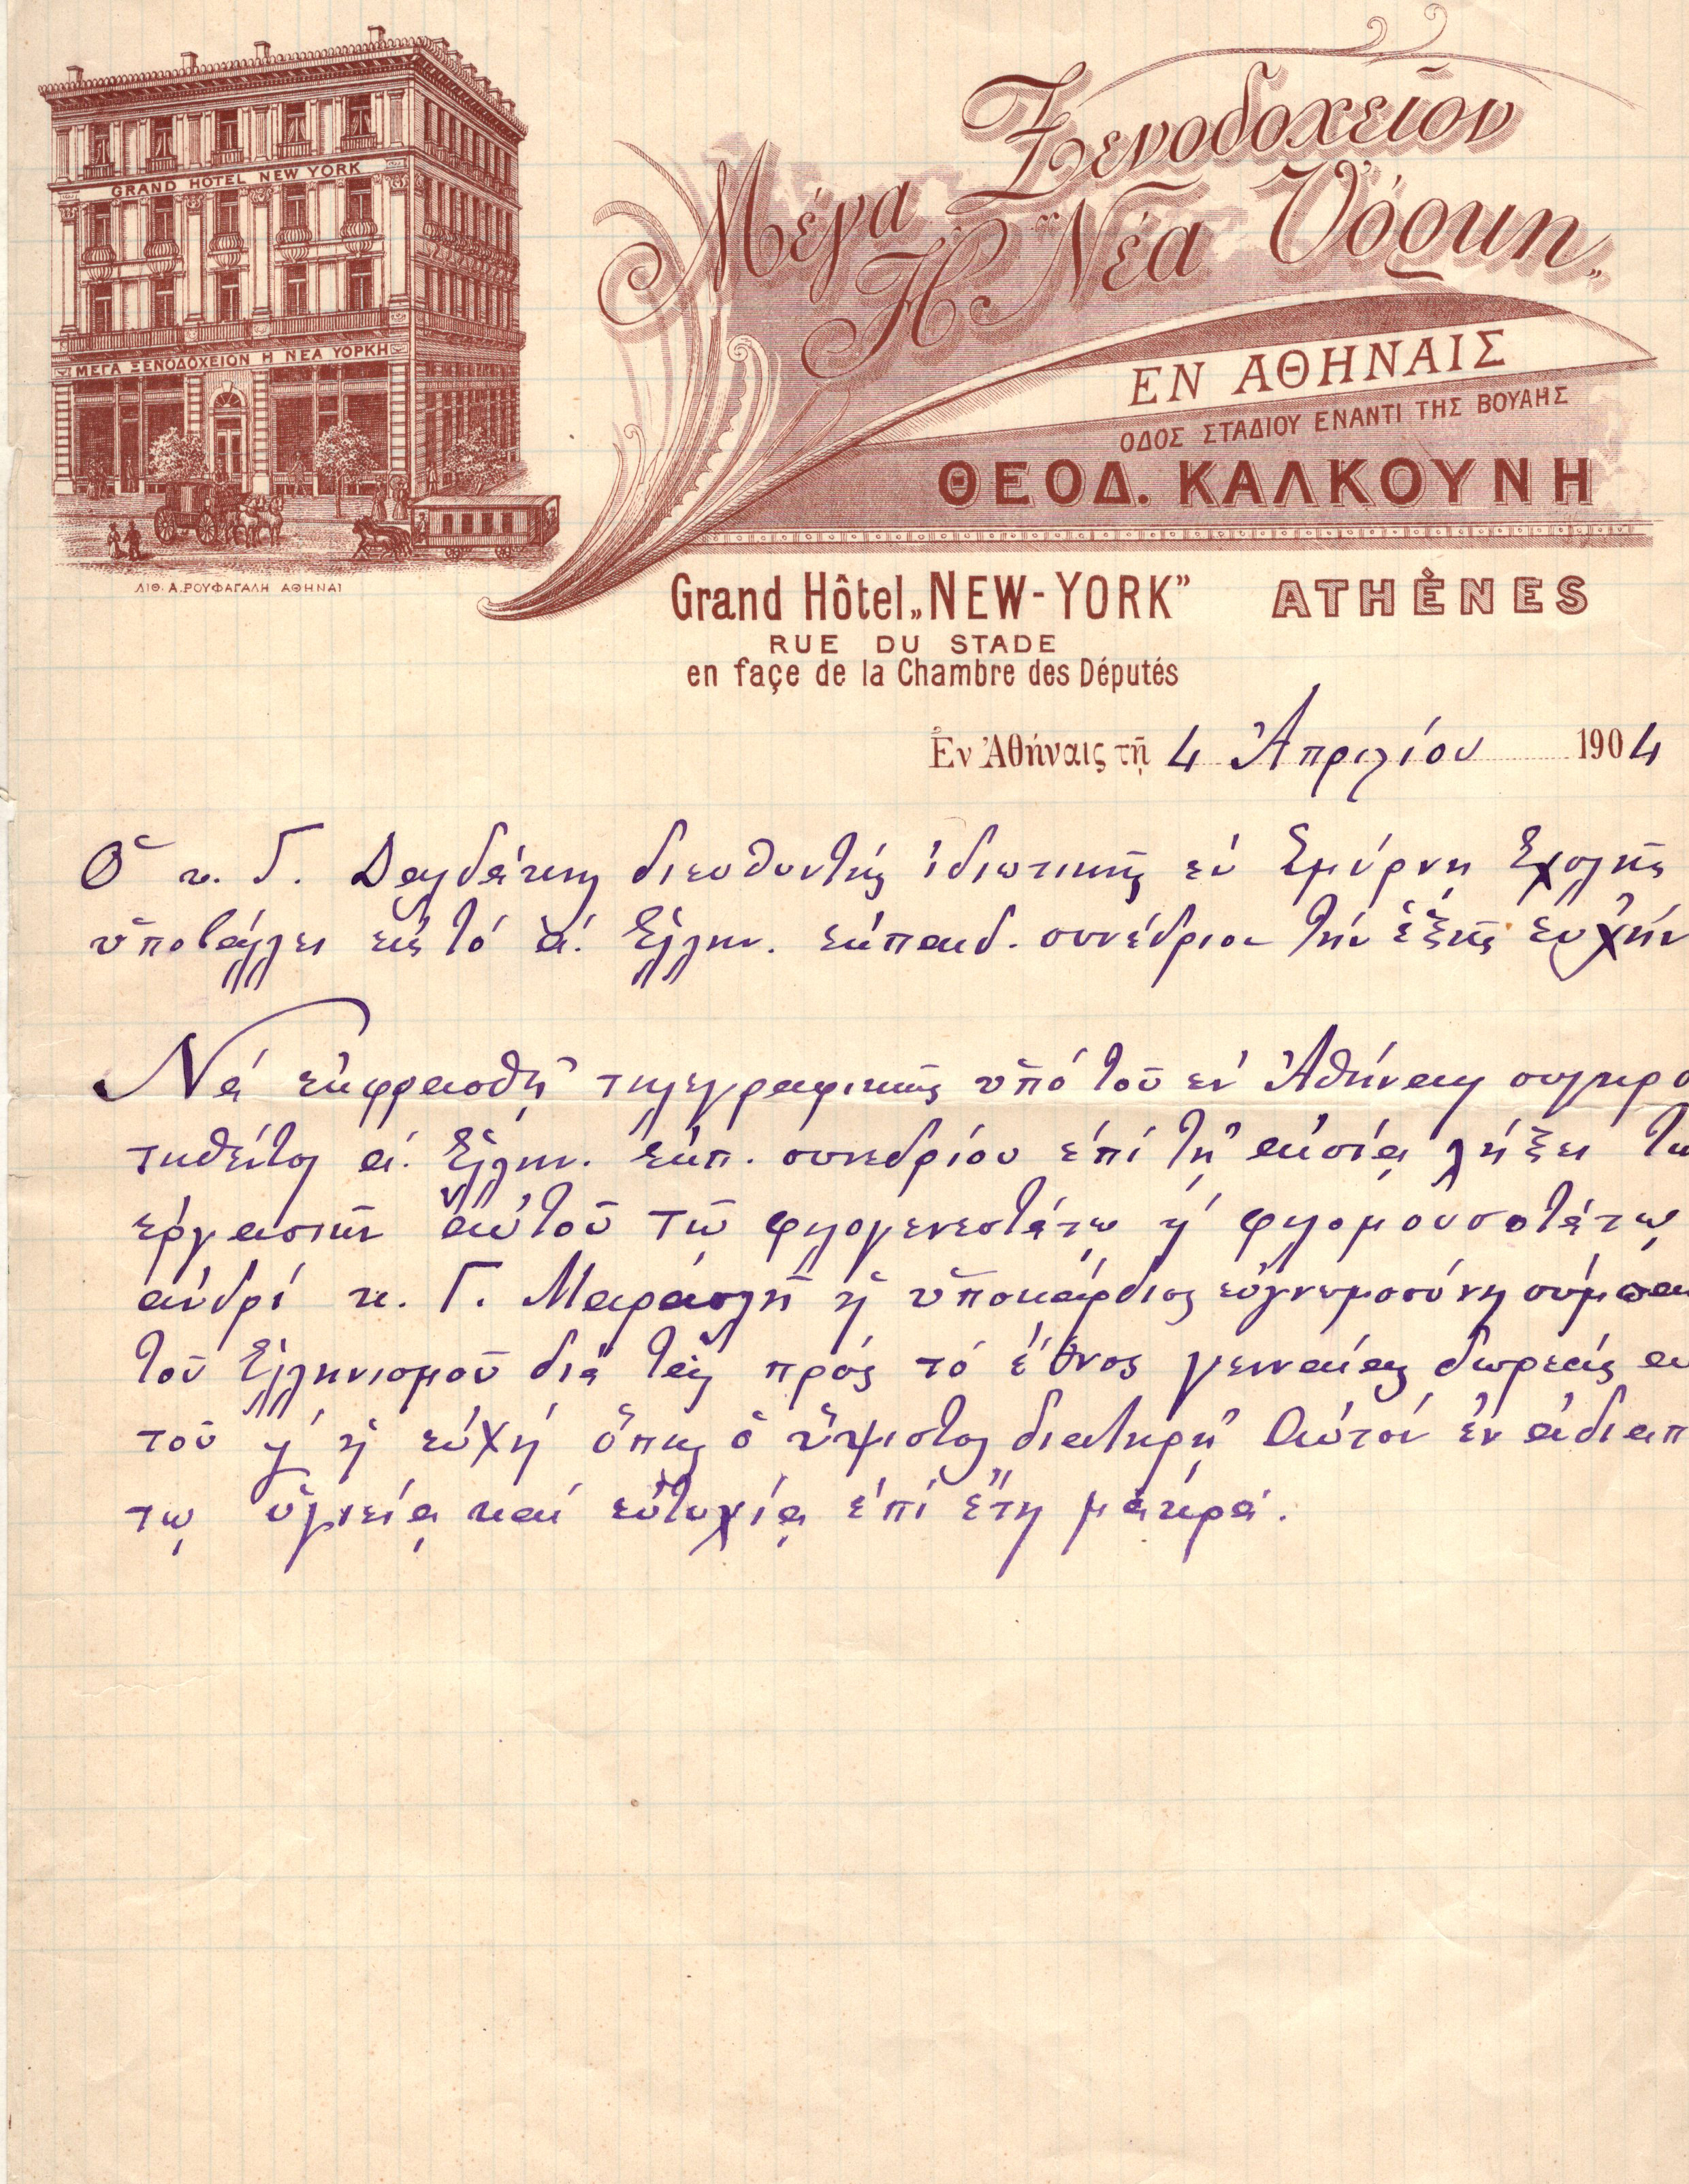 GRAND HOTEL NEW YORK
ΜΕΓΑ ΞΕΝΟΔΟΧΕΙΟΝ Η ΝΕΑ ΥΟΡΚΗ
ΛΙΘ. Α. ΡΟΥΦΑΓΑΛΗ ΑΘΗΝΑΙ
Μέγα Ξενοδοχεῖον
"Η Νέα Ὑόρκη"
ΕΝ ΑΘΗΝΑΙΣ
ΟΔΟΣ ΣΤΑΔΙΟΥ ΕΝΑΝΤΙ ΤΗΣ ΒΟΥΛΗΣ
ΘΕΟΔ. ΚΑΛΚΟΥΝΗ
Grand Hôtel „NEW-YORK" ATHÈNES
RUE DU STADE
en façe de la Chambre des Députés
Ἐν Ἀθήναις τῇ 4 Ἀπριλίου 1904
Ὁ κ. Γ. διευθυντής ἰδιωτικῆς ἐν Σμύρνῃ Σχολῆς
ὑποβάλλει εἰς τό α΄. Ἑλλην. ἐκπαιδ. συνέδριον τήν ἑξῆς εὐχήν
Νά ἐκφρασθῇ τηλεγραφικῶς ὑπό τοῦ ἐν Ἀθήναις συγκρο
τηθέντος α΄. Ἑλλην. ἐκπ. συνεδρίου ἐπί τῇ αἰσίᾳ λήξει τῶ
ἐργασιῶν αὐτοῦ τῷ φιλογενεστάτῳ ϗ φιλομουσοτάτῳ
ἀνδρί κ. Γ. Μαρασλῇ ἡ ὑποκάρδιος εὐγνωμοσύνη σύμπαν
τοῦ Ἑλληνισμοῦ διά τάς πρός τό ἔθνος γενναίας δωρεάς αὐ
τοῦ ϗ ἡ εὐχή ὅπως ὁ ὕψιστος διατηρῇ Αὐτόν ἐν ἀδιαπ
τῳ ὑγιείᾳ καί εὐτυχίᾳ ἐπί ἔτη μακρά.